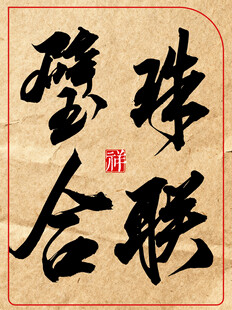 珠联
璧合
祥